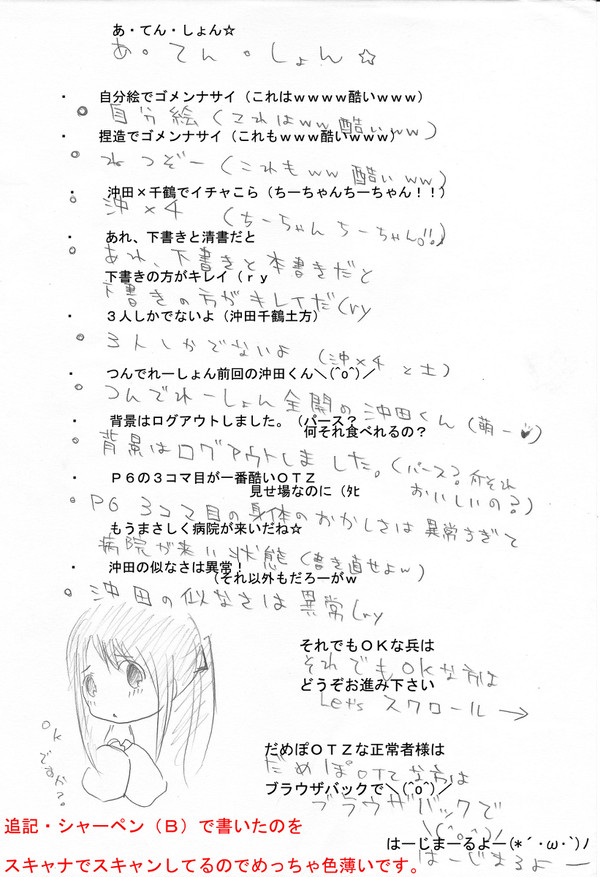 あ・てん・しょん☆
あ・てん・しょん☆
・ 自分絵でゴメンナサイ（これはｗｗｗｗ酷いｗｗｗ）
。自分絵（これはww酷いww）
・ 捏造でゴメンナサイ（これもｗｗｗ酷いｗｗｗ）
。ねつぞー（これもww酷いww）
・ 沖田×千鶴でイチャこら（ちーちゃんちーちゃん！！）
。沖×千（ちーちゃんちーちゃん!!）
・ あれ、下書きと清書だと
。あれ、下書きと本書きだと
下書きの方がキレイ（ｒｙ
下書きの方がキレイだ（ry
・ ３人しかでないよ（沖田千鶴土方）
。3人しかでないよ（沖×千と土）
・ つんでれーしょん前回の沖田くん＼(^o^)／
。つんでれーしょん全開の沖田くん（萌ー♥）
・ 背景はログアウトしました。（パース？
何それ食べれるの？
。背景はログアウトしました。（パース？何それ
おいしいの？）
・ Ｐ６の３コマ目が一番酷いＯＴＺ
見せ場なのに（ﾀﾋ
。P6 3コマ目の身体のおかしさは異常すぎて
もうまさしく病院が来いだね☆
病院が来い状態（書き直せよw）
・ 沖田の似なさは異常！
（それ以外もだろーがｗ
。沖田の似なさは異常（ry
それでもＯＫな兵は
それでもOKな方は
どうぞお進み下さい
Let's スクロール→
OK
ですか？。
だめぽＯＴＺな正常者様は
だめぽOTZな方は
ブラウザバックで＼(^o^)／
ブラウザバックで
＼(^o^)／
はーじまーるよー(*´・ω・`)ﾉ
はーじまるよー
追記・シャーペン（Ｂ）で書いたのを
スキャナでスキャンしてるのでめっちゃ色薄いです。